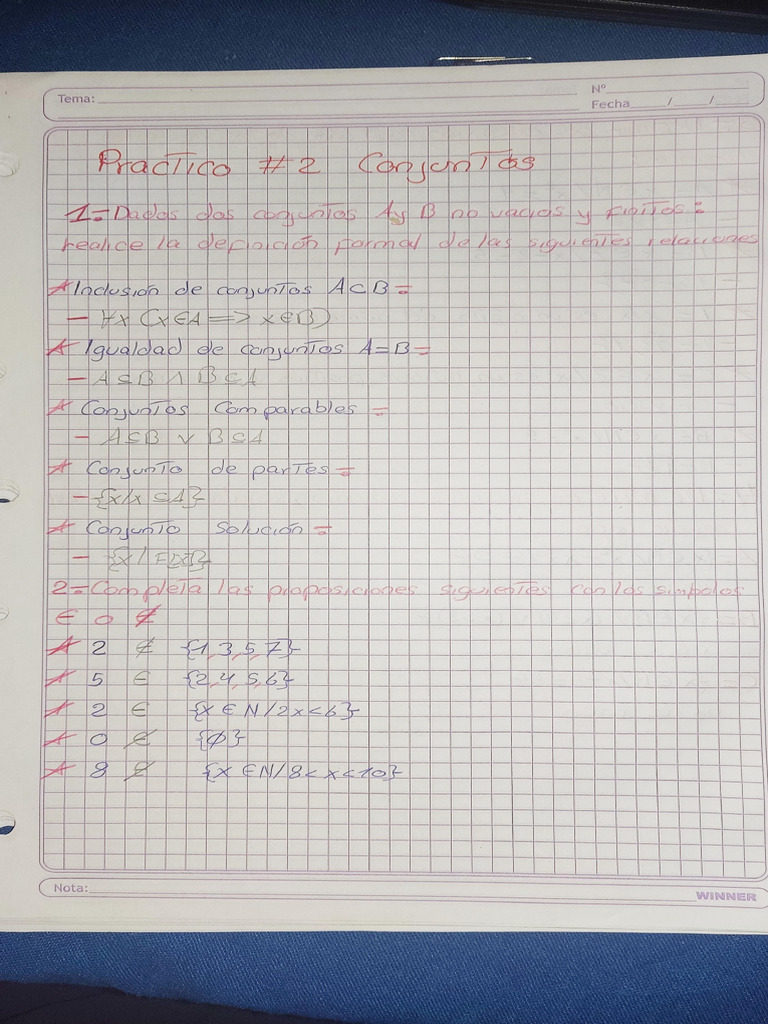 Tema:
Nº
Fecha / /
Practico #2 Conjuntos
1= Dados dos conjuntos A y B no vacios y finitos:
realice la definición formal de las siguientes relaciones
* Inclusión de conjuntos A⊂B=
- ∀x (x∈A => x∈B)
* Igualdad de conjuntos A=B=
- A⊆B ∧ B⊆A
* Conjuntos Comparables =
- A⊆B ∨ B⊆A
* Conjunto de partes=
- {x/x ⊆A}
* Conjunto Solución=
- {x/F(x)}
2= Completa las proposiciones siguientes con los simbolos
∈ o ∉
* 2 ∉ {1,3,5,7}
* 5 ∈ {2,4,5,6}
* 2 ∈ {x ∈ N/2x<6}
* 0 ∉ {∅}
* 8 ∉ {x ∈N/8< x<10}
Nota:
WINNER